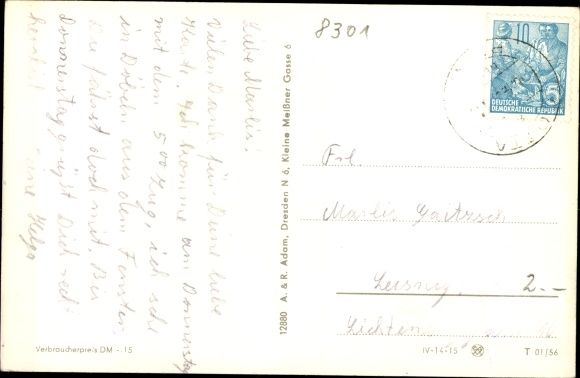 8301
Liebe Marlis!
Vielen Dank für Deine liebe
Karte. Ich komme am Donnerstag
mit dem 500 Zug, ich sehe
in Döbeln aus dem Fenster.
Du fährst doch mit. Bis
Donnerstag grüßt Dich recht
herzlich Helga
12880 A. & R. Adam, Dresden N 6, Kleine Meißner Gasse 6
10
5
DEUTSCHE
DEMOKRATISCHE REPUBLIK
Frl.
Marlis Gaitzsch
Leisnig
2.--
Lichten
Verbraucherpreis DM -.15
IV-14-15
T 01/56